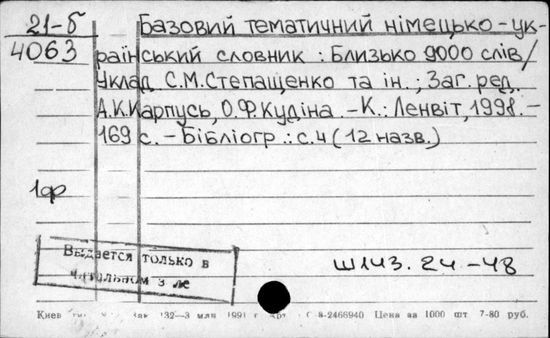 21-б Базовий тематичний німецько-ук-
4063 раїнський словник : Близько 9000 слів/
Уклад. С.М.Степащенко та ін.; Заг. ред.
А.К.Карпусь, О.Ф.Кудіна. - К.: Ленвіт, 1998. -
169 с. - Бібліогр.: с.4 (12 назв.)
1ф
Выдается только в
читальном зале
Ш143.24.-48
Киев 132—3 млн 1991 г. 8-2466940 Цена за 1000 шт 7-80 руб.